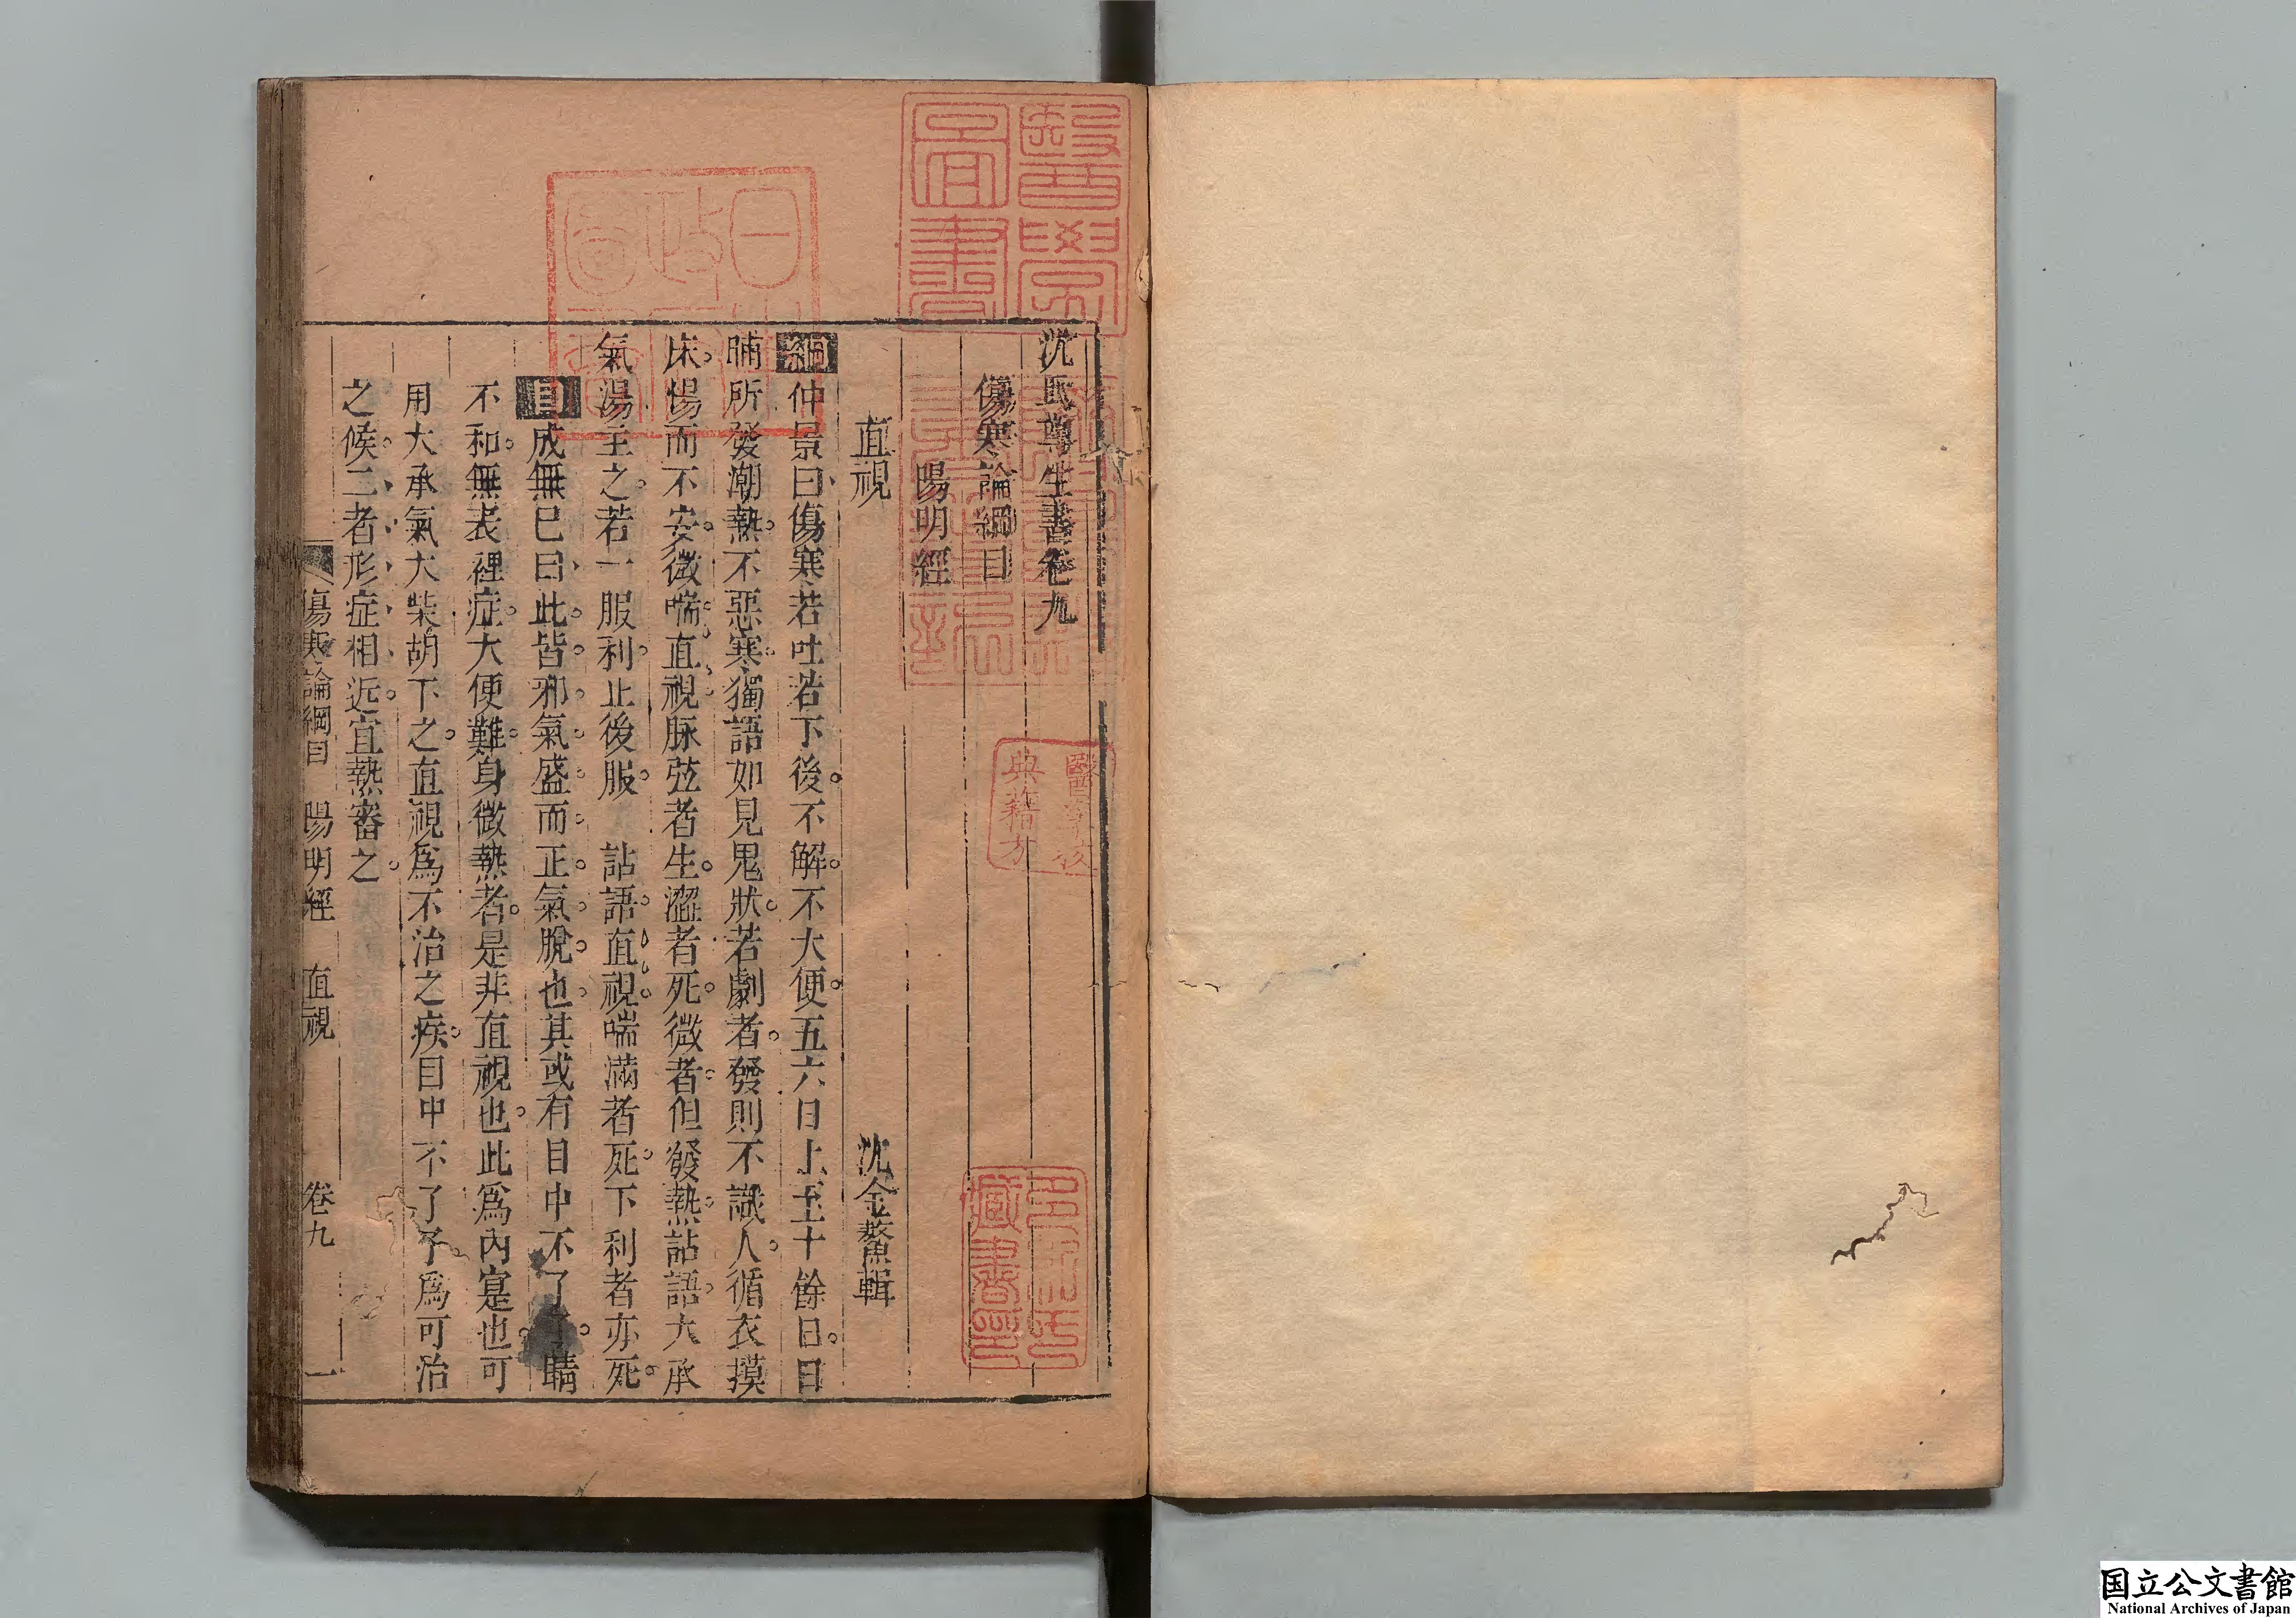 沈氏尊生書卷九
傷寒論綱目
陽明經
直視
沈金鰲輯
綱仲景曰傷寒若吐若下後不解不大便五六日上至十餘日日
晡所發潮熱不惡寒獨語如見鬼狀若劇者發則不識人循衣摸
床惕而不安微喘直視脉弦者生澀者死微者但發熱詀語大承
氣湯主之若一服利止後服　詀語直視喘滿者死下利者亦死
目成無已曰此皆邪氣盛而正氣脫也其或有目中不了了睛
不和無表裡症大便難身微熱者是非直視也此為內寔也可
用大承氣大柴胡下之直視為不治之疾目中不了了為可治
之候二者形症相近宜熟審之
傷寒論綱目　陽明經　直視　卷九　一
醫學圖書
醫學校典籍方
多紀氏藏書印
国立公文書館
National Archives of Japan